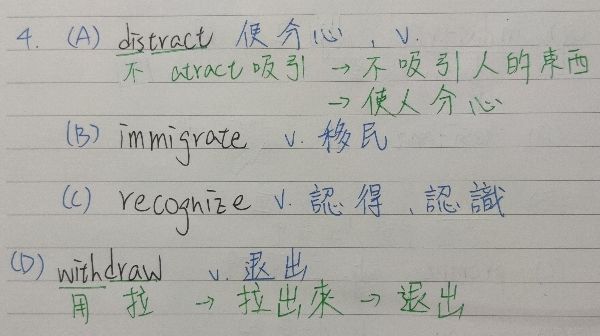 4. (A) distract 使分心, v.
不 atract 吸引 → 不吸引人的東西
→ 使人分心
(B) immigrate v. 移民
(C) recognize v. 認得、認識
(D) withdraw v. 退出
用 拉 → 拉出來 → 退出